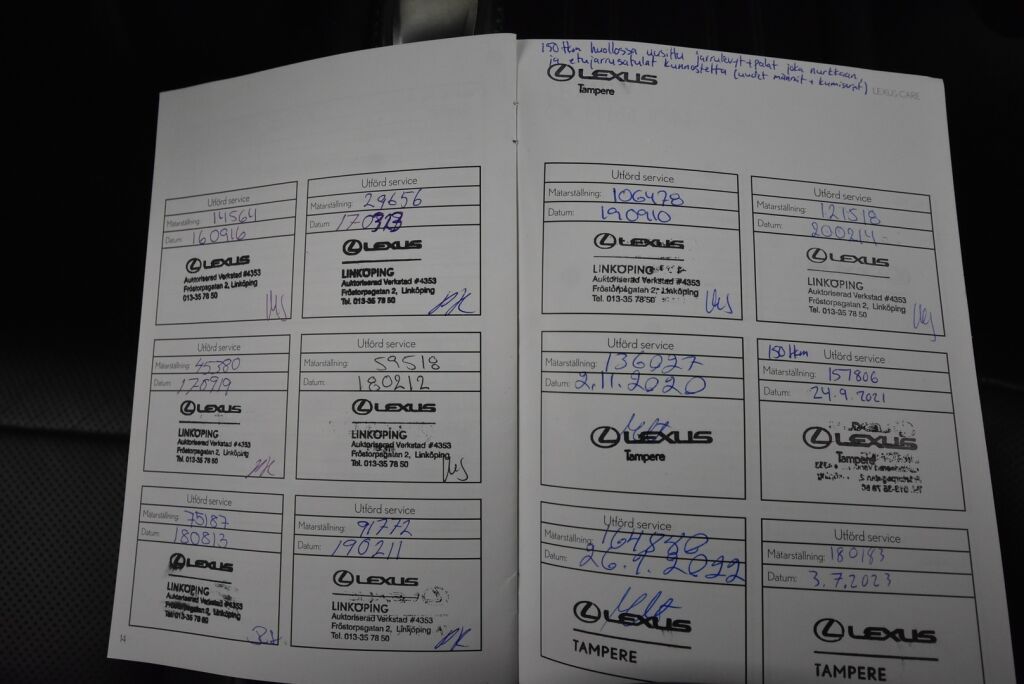 150 tkm huollossa uusittu jarrulevyt + palat joka nurkkaan,
ja etujarrusatulat kunnostettu (uudet männät + kumisarjat)
LEXUS CARE
LEXUS
Tampere
Utförd service
Mätarställning: 14564
Datum: 160916
LEXUS
LINKÖPING
Auktoriserad Verkstad #4353
Fröstorpsgatan 2, Linköping
013-35 78 50
Utförd service
Mätarställning: 29656
Datum: 170313
LEXUS
LINKÖPING
Auktoriserad Verkstad #4353
Fröstorpsgatan 2, Linköping
Tel. 013-35 78 50
Utförd service
Mätarställning: 45380
Datum: 170919
LEXUS
LINKÖPING
Auktoriserad Verkstad #4353
Fröstorpsgatan 2, Linköping
Tel. 013-35 78 50
Utförd service
Mätarställning: 59518
Datum: 180212
LEXUS
LINKÖPING
Auktoriserad Verkstad #4353
Fröstorpsgatan 2, Linköping
Tel. 013-35 78 50
Utförd service
Mätarställning: 75187
Datum: 180813
LEXUS
LINKÖPING
Auktoriserad Verkstad #4353
Fröstorpsgatan 2, Linköping
Tel. 013-35 78 50
Utförd service
Mätarställning: 91772
Datum: 190211
LEXUS
LINKÖPING
Auktoriserad Verkstad #4353
Fröstorpsgatan 2, Linköping
Tel. 013-35 78 50
14
Utförd service
Mätarställning: 106478
Datum: 190910
LEXUS
LINKÖPING
Auktoriserad Verkstad #4353
Fröstorpsgatan 2, Linköping
Tel. 013-35 78 50
Utförd service
Mätarställning: 121518
Datum: 200214
LEXUS
LINKÖPING
Auktoriserad Verkstad #4353
Fröstorpsgatan 2, Linköping
Tel. 013-35 78 50
Utförd service
Mätarställning: 136027
Datum: 2.11.2020
LEXUS
Tampere
150 tkm Utförd service
Mätarställning: 151806
Datum: 24.9.2021
LEXUS
Tampere
Utförd service
Mätarställning: 164840
Datum: 26.9.2022
LEXUS
TAMPERE
Utförd service
Mätarställning: 180183
Datum: 3.7.2023
LEXUS
TAMPERE